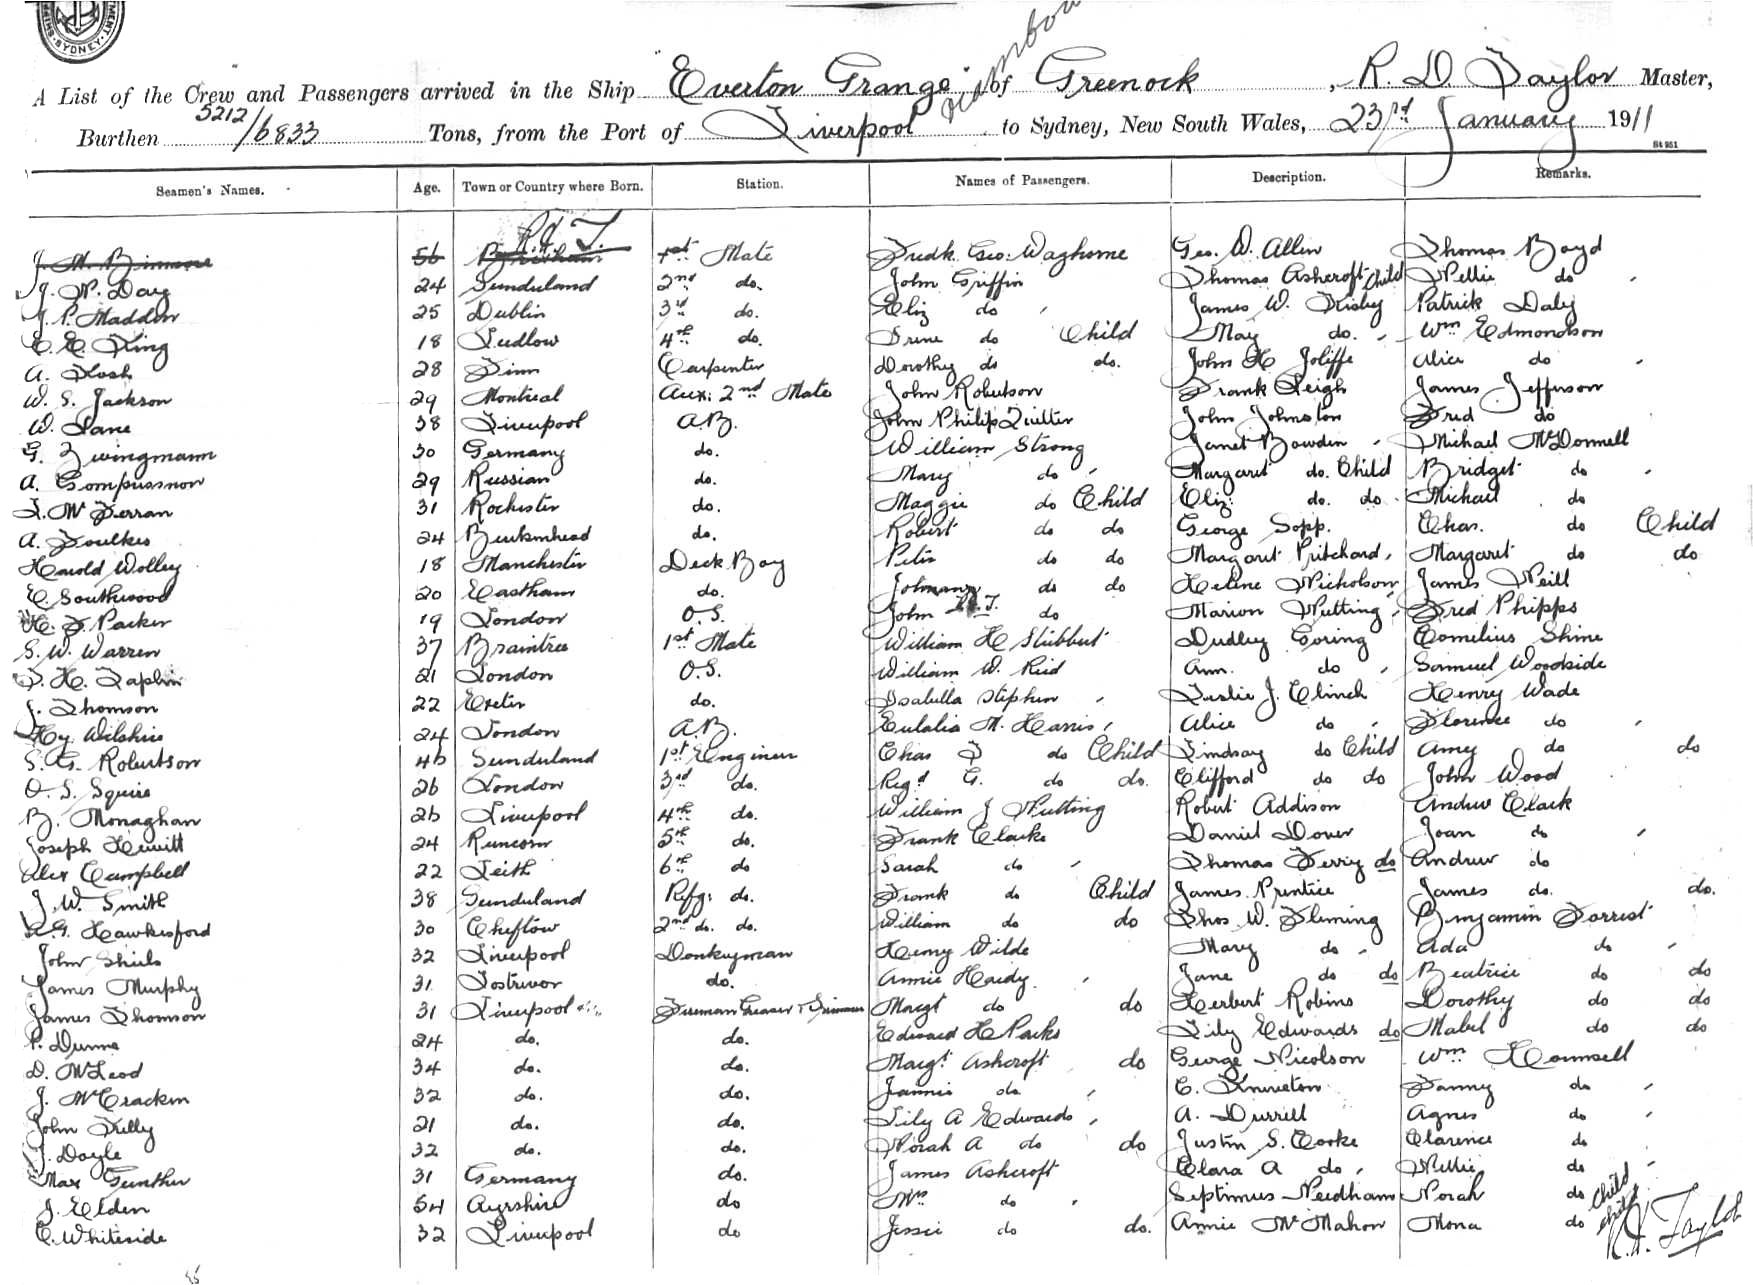 SYDNEY
A List of the Crew and Passengers arrived in the Ship "Everton Grange" of Greenock, R. D. Taylor Master,
Burthen 5212/6833 Tons, from the Port of Liverpool to Sydney, New South Wales, 23rd January 1911
St 951
Seamen's Names. Age. Town or Country where Born. Station. Names of Passengers. Description. Remarks.
56 1st Mate Fredk Geo. Waghorne Geo. W. Allen Thomas Boyd
24 Sunderland 2nd do. John Griffin Thomas Ashcroft Child Nellie do
J. P. Madden 25 Dublin 3rd do. Eliz do James W. Frisby Patrick Daly
E. E. King 18 Ludlow 4th do. Irene do Child May do. Wm Edmondson
A. 28 Finn Carpenter Dorothy do do. John H Joliffe Alice do
W. S. Jackson 29 Montreal Aux: 2nd Mate John Robertson Frank Leigh James Jefferson
W. Lane 38 Liverpool A.B. John Philip Quilter John Johnston Fred do
G. Zwingmann 30 Germany do. William Strong Janet Bowden Michael McDonnell
A. 29 Russian do. Mary do Margaret do. Child Bridget do
31 Rochester do. Maggie do Child Eliz: do. do. Michael do
A. Foulkes 24 Birkenhead do. Robert do do George Sopp. Chas. do Child
Harold Wolley 18 Manchester Deck Boy Peter do do Margaret Pritchard Margaret do do
E. Southwood 20 Eastham do. do do Helene Nicholson James Neill
H. F Packer 19 London O.S. John do Marion Nutting Fred Phipps
S. W. Warren 37 Braintree 1st Mate William H Stubbert Dudley Goring Cornelius Shine
F. H. Taplin 21 London O.S. William W. Reid Ann. do Samuel Woodside
J. Thomson 22 Exeter do. Isabella Stephen Leslie J. Clinch Henry Wade
Hy Wilshire 24 London A.B. Eulalia M. Harris Alice do Florence do
S. G. Robertson 46 Sunderland 1st Engineer Chas F do Child Lindsay do Child Amy do do
O. S. Squire 26 London 3rd do. Regd G. do do. Clifford do do John Wood
B. Monaghan 26 Liverpool 4th do. William J Nutting Robert Addison Andrew Clark
Joseph Hewitt 24 Runcorn 5th do. Frank Clarke Daniel Dover Joan do
Alex Campbell 22 Leith 6th do Sarah do Thomas Ferriz do Andrew do
J. W. Smith 38 Sunderland Rfg: do. Frank do Child James Prentice James do. do.
G. Hawkesford 30 Chepstow 2nd do. do. William do do Thos W. Fleming Benjamin Forrest
John Shiels 32 Liverpool Donkeyman Henry Wilde Mary do Ada do
James Murphy 31 Rostrevor do. Annie Hardy Jane do do Beatrice do do
James Thomson 31 Liverpool Fireman Greaser & Trimmer Margt do do Herbert Robins Dorothy do do
P. Dunne 24 do. do. Edward H Parks Lily Edwards do Mabel do do
D. McLeod 34 do. do. Margt. Ashcroft do George Nicolson Wm Hounsell
J. McCracken 32 do. do. Jeannie do. E. Kniveton Fanny do
John Kelly 21 do. do. Lily A Edwards A. Durrell Agnes do
J. Doyle 32 do. do. Norah A do do Justin S. Cooke Clarence do
Max Gunther 31 Germany do. James Ashcroft Clara A do Nellie do
J. Elden 54 Ayrshire do Mrs do Septimus Needham Norah do Child
E. Whiteside 32 Liverpool do Jessie do do. Annie McMahon Mona do Child